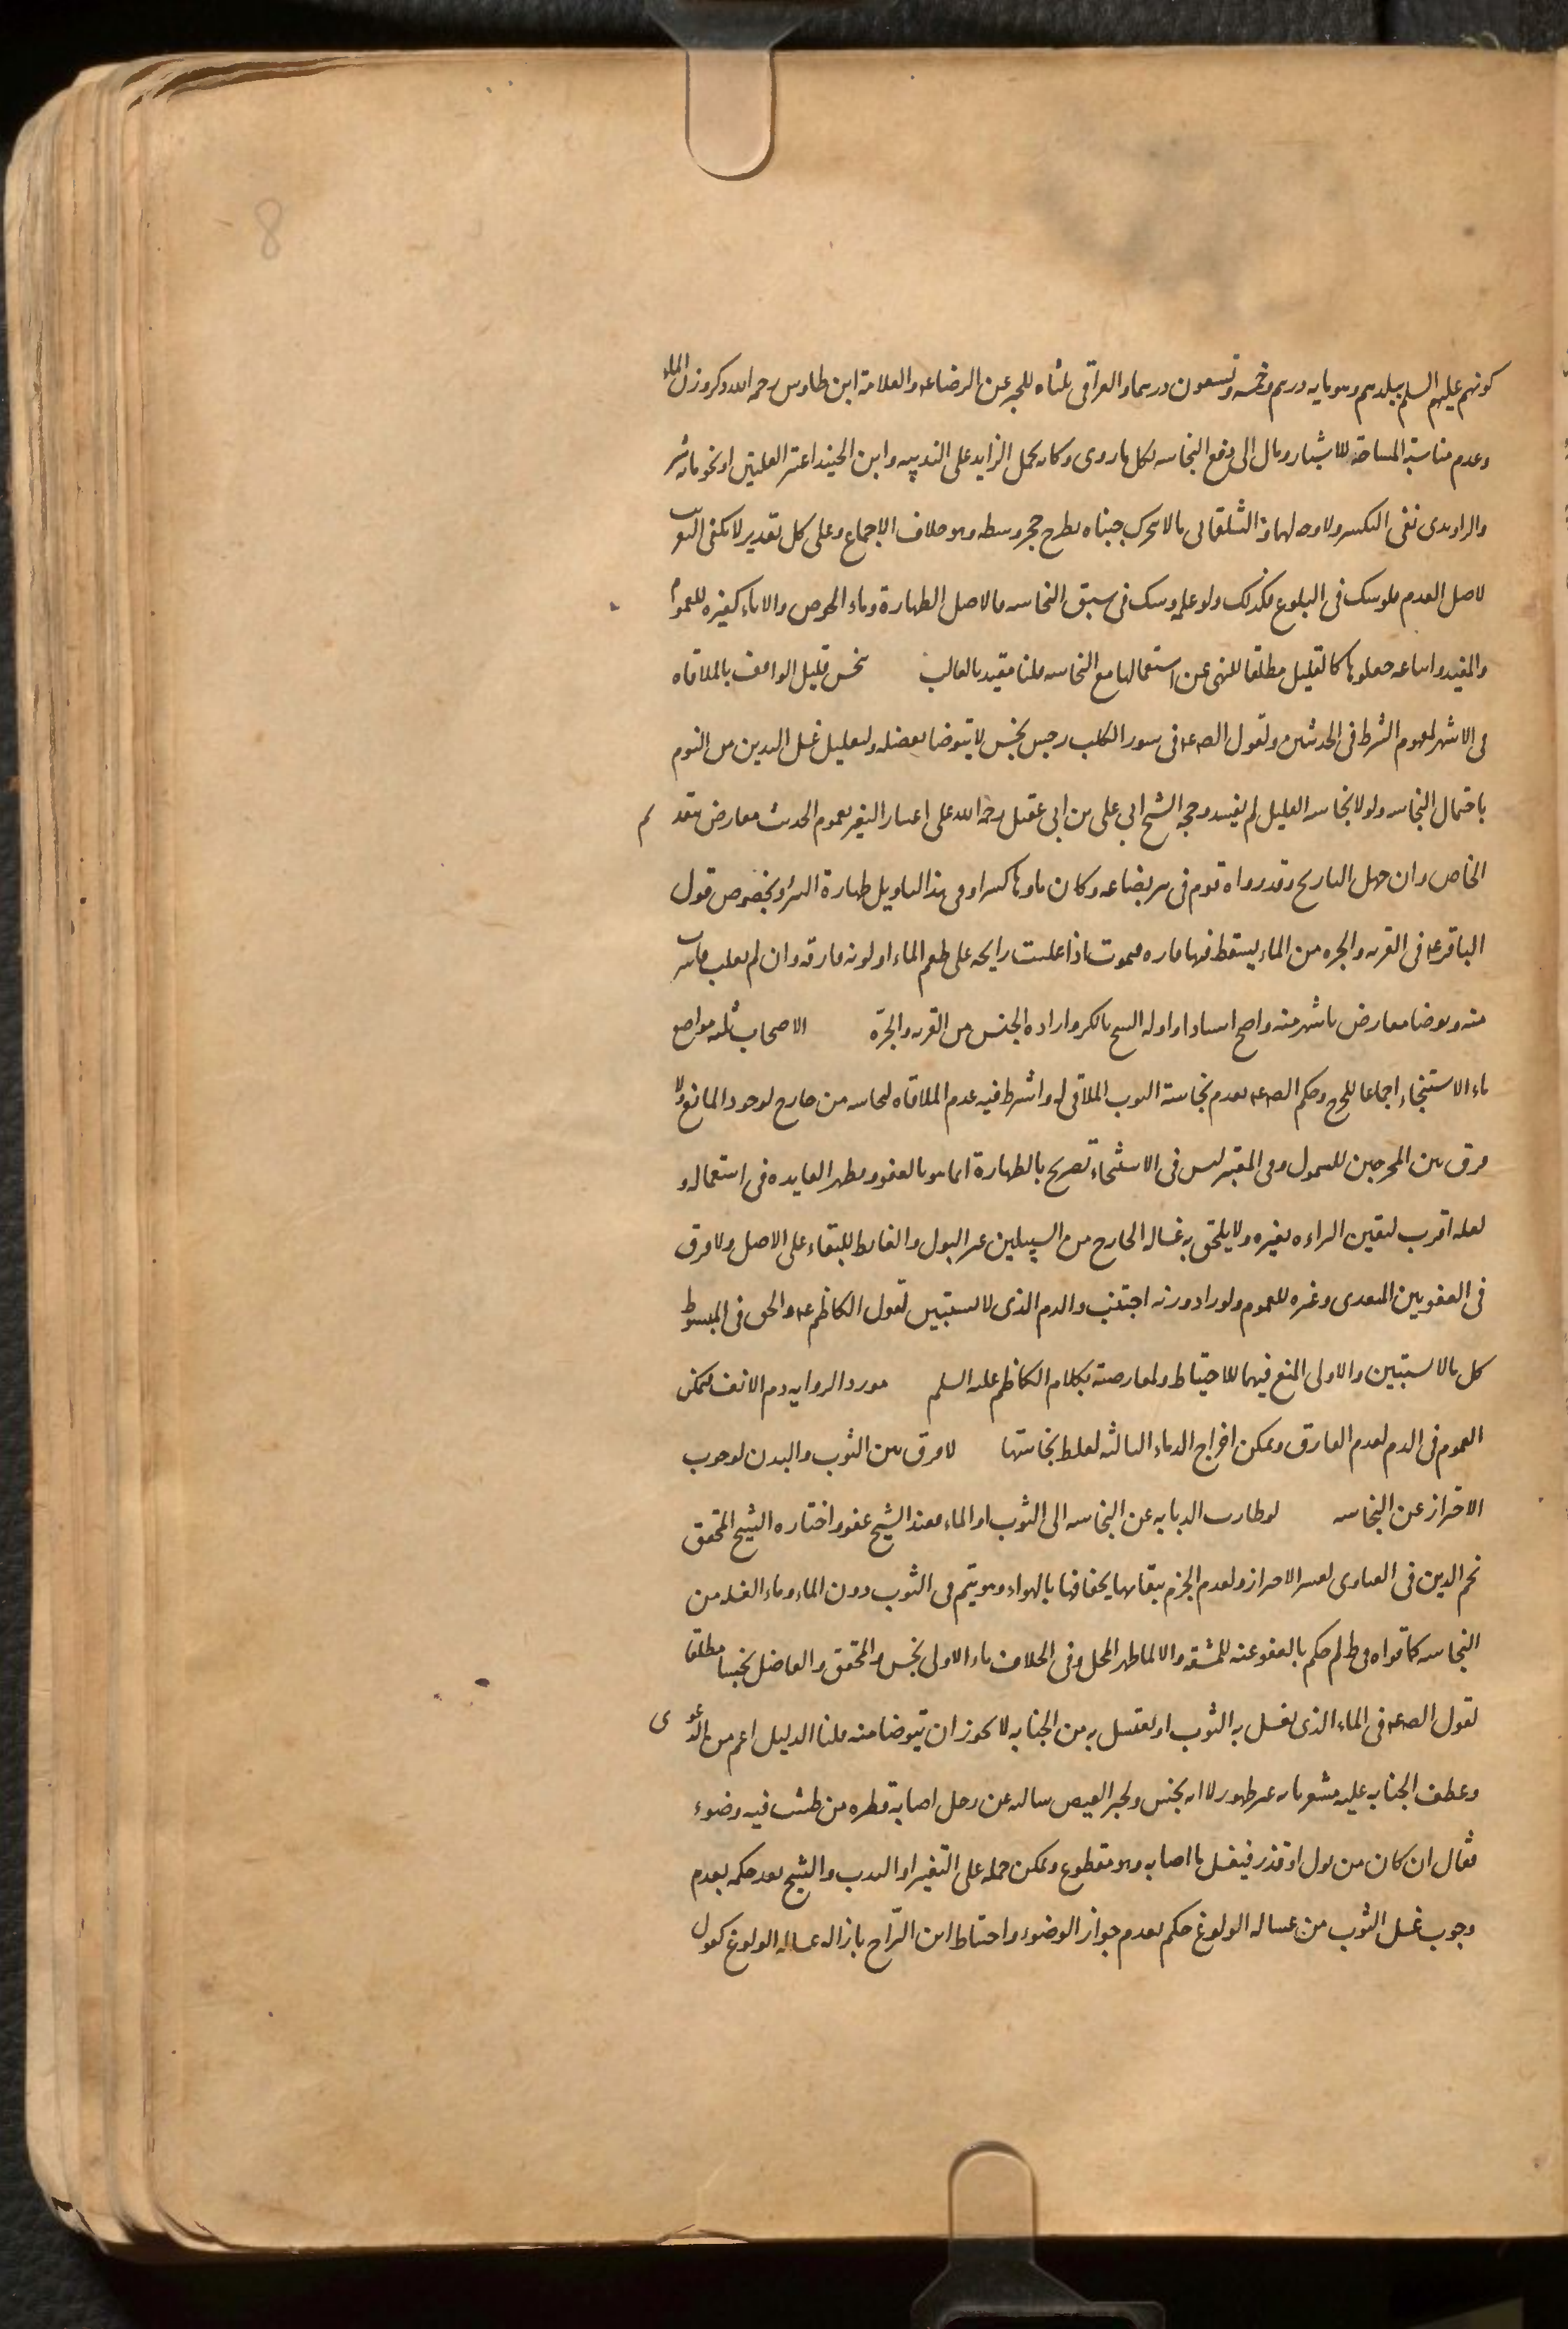 8
كونهم عليهم السلم ببلدهم وهو مايه درهم وخمسه وتسعون درهما والعراقي ثلثاه للخبر عن الرضا عه والعلامة ابن طاوس رحمه الله ذكر وزن الماء
وعدم مناسبة المساحة للاشبار ومال الى دفع النجاسه بكل ما روى وكانه يحمل الزايد على الندبيه وابن الجنيد اعتبر القلتين او نحو مائة شبر
والراوندى نفى التكسير ولا وجه لهما والشلمغانى ما لا يتحرك جنباه بطرح حجر وسطه وهو خلاف الاجماع وعلى كل تقدير لا يكفى التقريب
لاصل العدم فلو شك فى البلوغ فكذلك ولو علمه وشك فى سبق النجاسه فالاصل الطهارة وماء الحوض والاناء كغيره للعموم
والمفيد واتباعه جعلوها كالقليل مطلقا للنهى عن استعمالها مع النجاسه قلنا مقيد بالغالب ينجس قليل الواقف بالملاقاه
فى الاشهر لمفهوم الشرط فى الحديثين ولقول الص عه فى سور الكلب رجس نجس لا يتوضا بفضله ولتعليل غسل اليدين من النوم
باحتمال النجاسه ولولا نجاسه القليل لم يفسد وحجه الشيخ ابى على بن ابى عقيل رحمه الله على اعتبار التغير بعموم الحديث معارض بتقديم
الخاص وان جهل التاريخ وقد رواه قوم فى بير بضاعه وكان ماوها كثيرا وفى هذا التاويل طهارة البير وبخصوص قول
الباقر عه فى القربه والجره من الماء يسقط فيها فاره فتموت اذا غلبت رايحته على طعم الماء او لونه فارقه وان لم يغلب فاشرب
منه وتوضا معارض باشهر منه واصح اسنادا واوله الشيخ بالكر وارادة الجنس من القربه والجرّه الاصحاب ثلثه مواضع
ماء الاستنجاء اجماعا للحرج وحكم الص عه بعدم نجاسة الثوب الملاقى له واشترط فيه عدم الملاقاه لنجاسه من خارج لوجود المانع ولا
فرق بين المخرجين للشمول وفى المعتبر ليس فى الاستنجاء تصريح بالطهارة انما هو بالعفو ويظهر الفايده فى استعماله و
لعله اقرب لتيقن البراءه بغيره ولا يلحق به غساله الخارج من السبيلين غير البول والغايط للبقاء على الاصل ولا فرق
فى العفو بين المتعدى وغيره للعموم ولو زاد وزنه اجتنب والدم الذى لا يستبين لقول الكاظم عه والحق فى المبسوط
كل ما لا يستبين والاولى المنع فيهما للاحتياط ولمعارضته بكلام الكاظم عليه السلم مورد الرواية دم الانف فيمكن
العموم فى الدم لعدم الفارق ويمكن اخراج الدماء الثالثه لغلظ نجاستها لا فرق بين الثوب والبدن لوجوب
الاحتراز عن النجاسه لو طارت الذبابه عن النجاسه الى الثوب او الماء فعند الشيخ عفو واختاره الشيخ المحقق
نجم الدين فى الفتاوى لعسر الاحتراز ولعدم الجزم ببقائها لجفافها بالهواء وهو يتم فى الثوب دون الماء وماء الغسل من
النجاسه كما قواه فى ط لم حكم بالعفو عنه للمشقه والا لما طهر المحل وفى الخلاف ماء الاولى نجس والمحقق والفاضل نجسا مطلقا
لقول الص عه فى الماء الذى يغسل به الثوب او يغتسل به من الجنابه لا يجوز ان يتوضا منه قلنا الدليل اعم من الدعوى
وعطف الجنابه عليه مشعر بانه غير طهور لا انه نجس ولخبر العيص ساله عن رجل اصابه قطره من طشت فيه وضوء
فقال ان كان من بول او قذر فيغسل ما اصابه وهو مقطوع ويمكن حمله على التغير او الندب والشيخ بعد حكمه بعدم
وجوب غسل الثوب من غساله الولوغ حكم بعدم جواز الوضوء واحتاط ابن البرّاج بازاله غساله الولوغ كقول